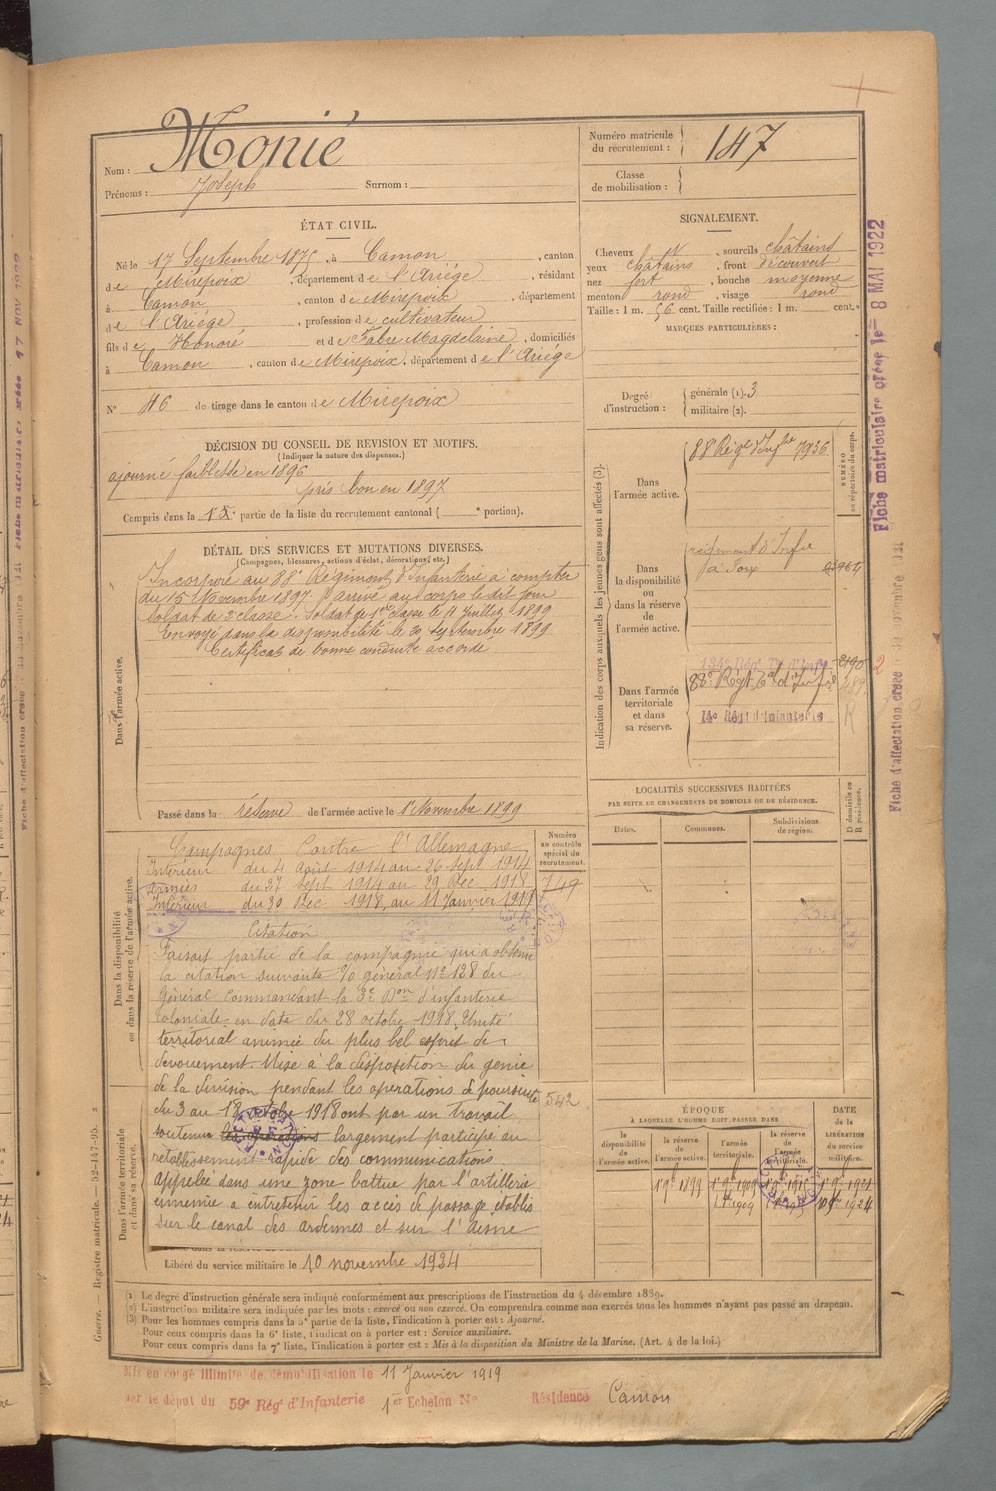 Nom : Monié
Prénoms : Joseph Surnom :
Numéro matricule du recrutement : 147
Classe de mobilisation :
ÉTAT CIVIL.
Né le 17 Septembre 1875, à Camon, canton
de Mirepoix, département de l'Ariège, résidant
à Camon, canton de Mirepoix, département
de l'Ariège, profession de cultivateur
fils de Honoré et de Fabre Magdelaine, domiciliés
à Camon, canton de Mirepoix, département de l'Ariège
N° 46 de tirage dans le canton de Mirepoix
DÉCISION DU CONSEIL DE REVISION ET MOTIFS.
(Indiquer la nature des dispenses.)
ajourné faiblesse en 1896
pris bon en 1897
Compris dans la 1re partie de la liste du recrutement cantonal ( e portion).
DÉTAIL DES SERVICES ET MUTATIONS DIVERSES.
(Campagnes, blessures, actions d'éclat, décorations, etc.)
Dans l'armée active.
Incorporé au 88e Régiment d'Infanterie à compter
du 15 Novembre 1897. arrivé au corps le dit jour
soldat de 2e classe. Soldat de 1re classe le 11 Juillet 1899
Envoyé dans la disponibilité le 20 Septembre 1899
Certificat de bonne conduite accordé
Passé dans la réserve de l'armée active le 1er Novembre 1899
Dans la disponibilité
ou dans la réserve de l'armée active.
Numéro
au contrôle
spécial du
recrutement.
749
Campagnes Contre l'Allemagne
Intérieur du 4 Août 1914 au 26 Sept 1914
Armées du 27 Sept 1914 au 29 Dec 1918
Intérieur du 30 Dec 1918 au 11 Janvier 1919
Citation
Faisait partie de la compagnie qui a obtenu
la citation suivante %o général n° 128 du
Général Commandant la 3e Don d'infanterie
coloniale en date du 28 octobre 1918. Unité
territorial animée du plus bel esprit de
dévouement. Mise à la disposition du génie
de la division pendant les opérations de poursuite
542
du 3 au 18 octobre 1918 ont par un travail
soutenu les opérations largement participé au
rétablissement rapide des communications.
Appelée dans une zone battue par l'artillerie
ennemie a entretenir les accès de passage établis
sur le canal des ardennes et sur l'Aisne
Dans l'armée territoriale
et dans sa réserve.
Libéré du service militaire le 10 novembre 1924
SIGNALEMENT.
Cheveux N, sourcils châtains
yeux châtains, front découvert
nez fort, bouche moyenne
menton rond, visage rond
Taille : 1 m. 56 cent. Taille rectifiée : 1 m. cent.
MARQUES PARTICULIÈRES :
Degré d'instruction : générale (1). 3
militaire (2).
Indication des corps auxquels les jeunes gens sont affectés (3).
NUMÉRO
au répertoire du corps.
Dans l'armée active. 88 Régt d'Infie 7936
Dans la disponibilité ou dans la réserve de l'armée active. régiment d'Infie
à Foix
Dans l'armée territoriale et dans sa réserve. 134e Rég. Tl d'Infie 2190
88e Régt Tal d'Infie
14e Régt d'Infanterie
LOCALITÉS SUCCESSIVES HABITÉES
PAR SUITE DE CHANGEMENTS DE DOMICILE OU DE RÉSIDENCE.
Dates. Communes. Subdivisions de région. D domicile ou R résidence.
ÉPOQUE
À LAQUELLE L'HOMME DOIT PASSER DANS
la disponibilité de l'armée active. la réserve de l'armée active. l'armée territoriale. la réserve de l'armée territoriale.
DATE de la LIBÉRATION du service militaire.
1 9bre 1899 1 9bre 1909 1 9bre 1915 1 9bre 1921
1 8bre 1909 10 9bre 1924
(1) Le degré d'instruction générale sera indiqué conformément aux prescriptions de l'instruction du 4 décembre 1889.
(2) L'instruction militaire sera indiquée par les mots : exercé ou non exercé. On comprendra comme non exercés tous les hommes n'ayant pas passé au drapeau.
(3) Pour les hommes compris dans la 5e partie de la liste, l'indication à porter est : Ajourné.
Pour ceux compris dans la 6e liste, l'indication à porter est : Service auxiliaire.
Pour ceux compris dans la 7e liste, l'indication à porter est : Mis à la disposition du Ministre de la Marine. (Art. 4 de la loi.)
Mis en congé illimité de démobilisation le 11 Janvier 1919
par le dépôt du 59e Rég t d'Infanterie 1er Echelon N° Résidence Camon
Guerre. — Registre matricule. — 52-147-95.
Fiche matriculaire créée le 8 MAI 1922
Fiche d'affectation créée